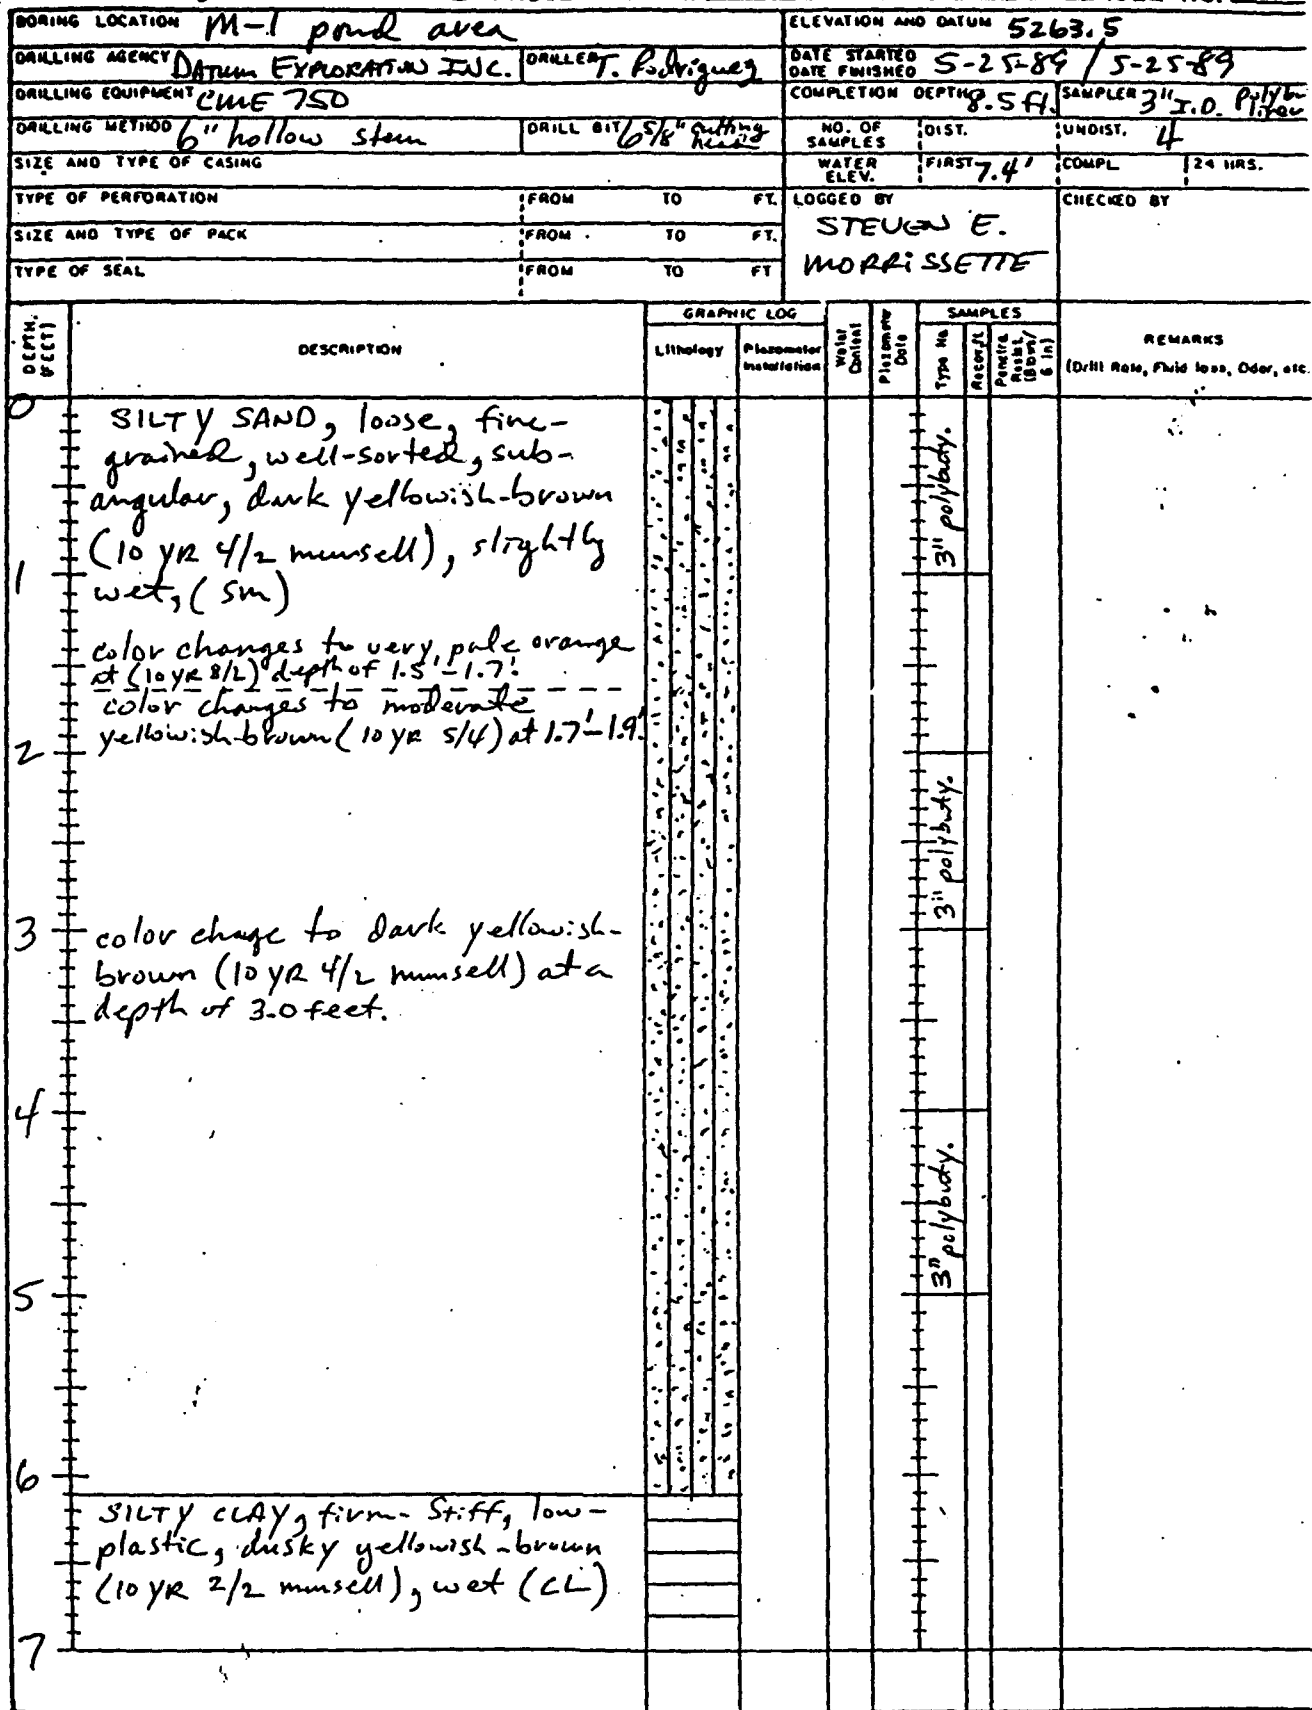 BORING LOCATION M-1 pond area
ELEVATION AND DATUM 5263.5
DRILLING AGENCY DATUM EXPLORATION INC.
DRILLER T. Rodriguez
DATE STARTED 5-25-89 / 5-25-89
DATE FINISHED
DRILLING EQUIPMENT CME 750
COMPLETION DEPTH 8.5 ft.
SAMPLER 3" I.D. Polybu liner
DRILLING METHOD 6" hollow stem
DRILL BIT 6 5/8" cutting head
NO. OF SAMPLES
DIST.
UNDIST. 4
SIZE AND TYPE OF CASING
WATER ELEV.
FIRST 7.4'
COMPL
24 HRS.
TYPE OF PERFORATION
FROM TO FT.
LOGGED BY
STEVEN E.
MORRISSETTE
CHECKED BY
SIZE AND TYPE OF PACK
FROM TO FT.
TYPE OF SEAL
FROM TO FT
DEPTH, (FEET)
DESCRIPTION
GRAPHIC LOG
Lithology
Piezometer Installation
Water Content
Piezometer Data
SAMPLES
Type No
Recov. ft
Penetra Resist. (Blows/ 6 in)
REMARKS
(Drill Rate, Fluid loss, Odor, etc.
0
SILTY SAND, loose, fine-
grained, well-sorted, sub-
angular, dark yellowish-brown
(10 YR 4/2 munsell), slightly
wet, (SM)
1
color changes to very pale orange
at (10 YR 8/2) depth of 1.5'-1.7'.
color changes to moderate
yellowish-brown (10 YR 5/4) at 1.7'-1.9'.
2
3
color chage to dark yellowish-
brown (10 YR 4/2 munsell) at a
depth of 3.0 feet.
4
5
6
SILTY CLAY, firm-stiff, low-
plastic, dusky yellowish-brown
(10 YR 2/2 munsell), wet (CL)
7
3" polybudy.
3" polybudy.
3" polybudy.